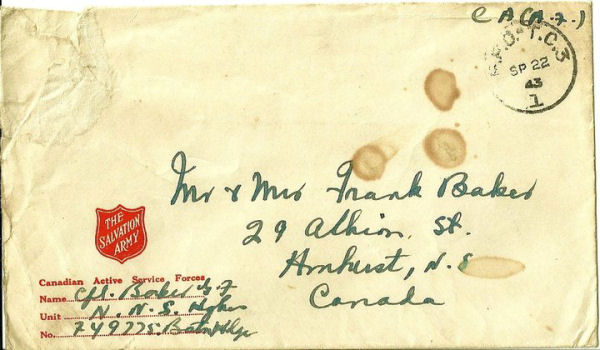 C A (A.F.)
F.P.O. T.C.3
SP 22
43
1
Mr & Mrs Frank Baker
29 Albion St.
Amherst, N.S
Canada
THE
SALVATION
ARMY
Canadian Active Service Forces
Name Cpl. Baker G.F
Unit N. N.S. Hghrs
No. 749775